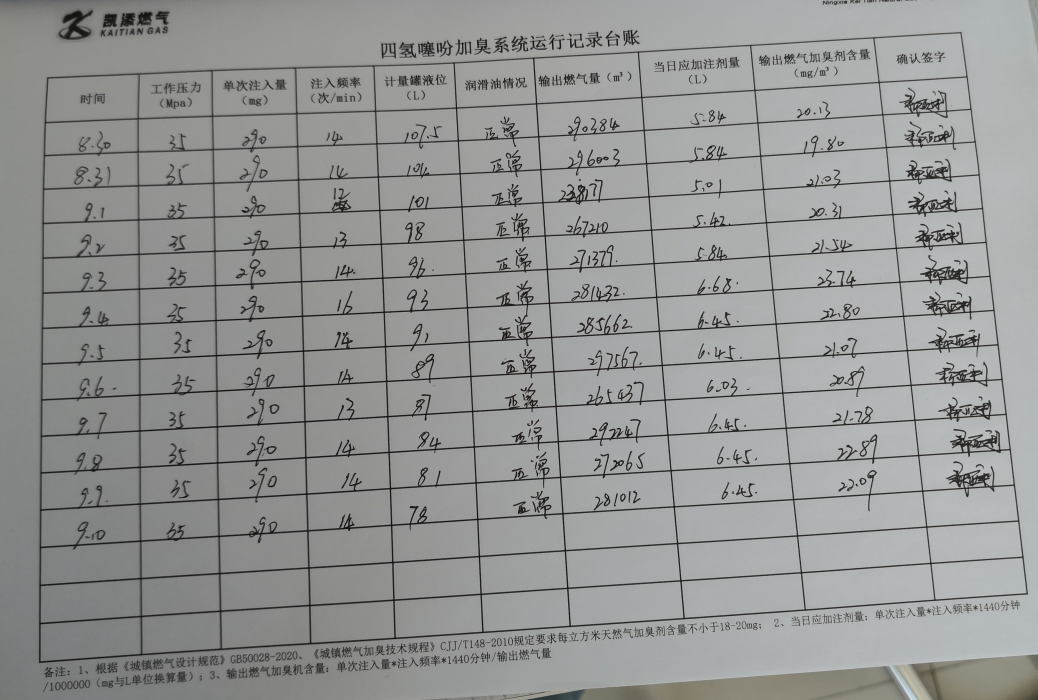 凯添燃气
KAITIAN GAS
四氢噻吩加臭系统运行记录台账
时间 工作压力(Mpa) 单次注入量(mg) 注入频率(次/min) 计量罐液位(L) 润滑油情况 输出燃气量(m³) 当日应加注剂量(L) 输出燃气加臭剂含量(mg/m³) 确认签字
8.30 35 290 14 107.5 正常 290384 5.84 20.13
8.31 35 290 14 104 正常 296003 5.84 19.80
9.1 35 290 12 101 正常 5.01 21.03
9.2 35 290 13 98 正常 267210 5.42. 20.31
9.3 35 290 14. 96. 正常 271379. 5.84. 21.54
9.4 35 290 16 93 正常 281432. 6.68. 23.74
9.5 35 290 14 91 正常 285662 6.45. 22.80
9.6- 35 290 14 89 正常 297567. 6.45. 21.07
9.7 35 290 13 87 正常 265437 6.03. 20.89
9.8 35 290 14 84 正常 292247 6.45. 21.78
9.9. 35 290 14 81 正常 272065 6.45. 22.89
9.10 35 290 14 78 正常 281012 6.45. 22.09
备注：1、根据《城镇燃气设计规范》GB50028-2020、《城镇燃气加臭技术规程》CJJ/T148-2010规定要求每立方米天然气加臭剂含量不小于18-20mg； 2、当日应加注剂量：单次注入量*注入频率*1440分钟
/1000000（mg与L单位换算量）；3、输出燃气加臭机含量：单次注入量*注入频率*1440分钟/输出燃气量